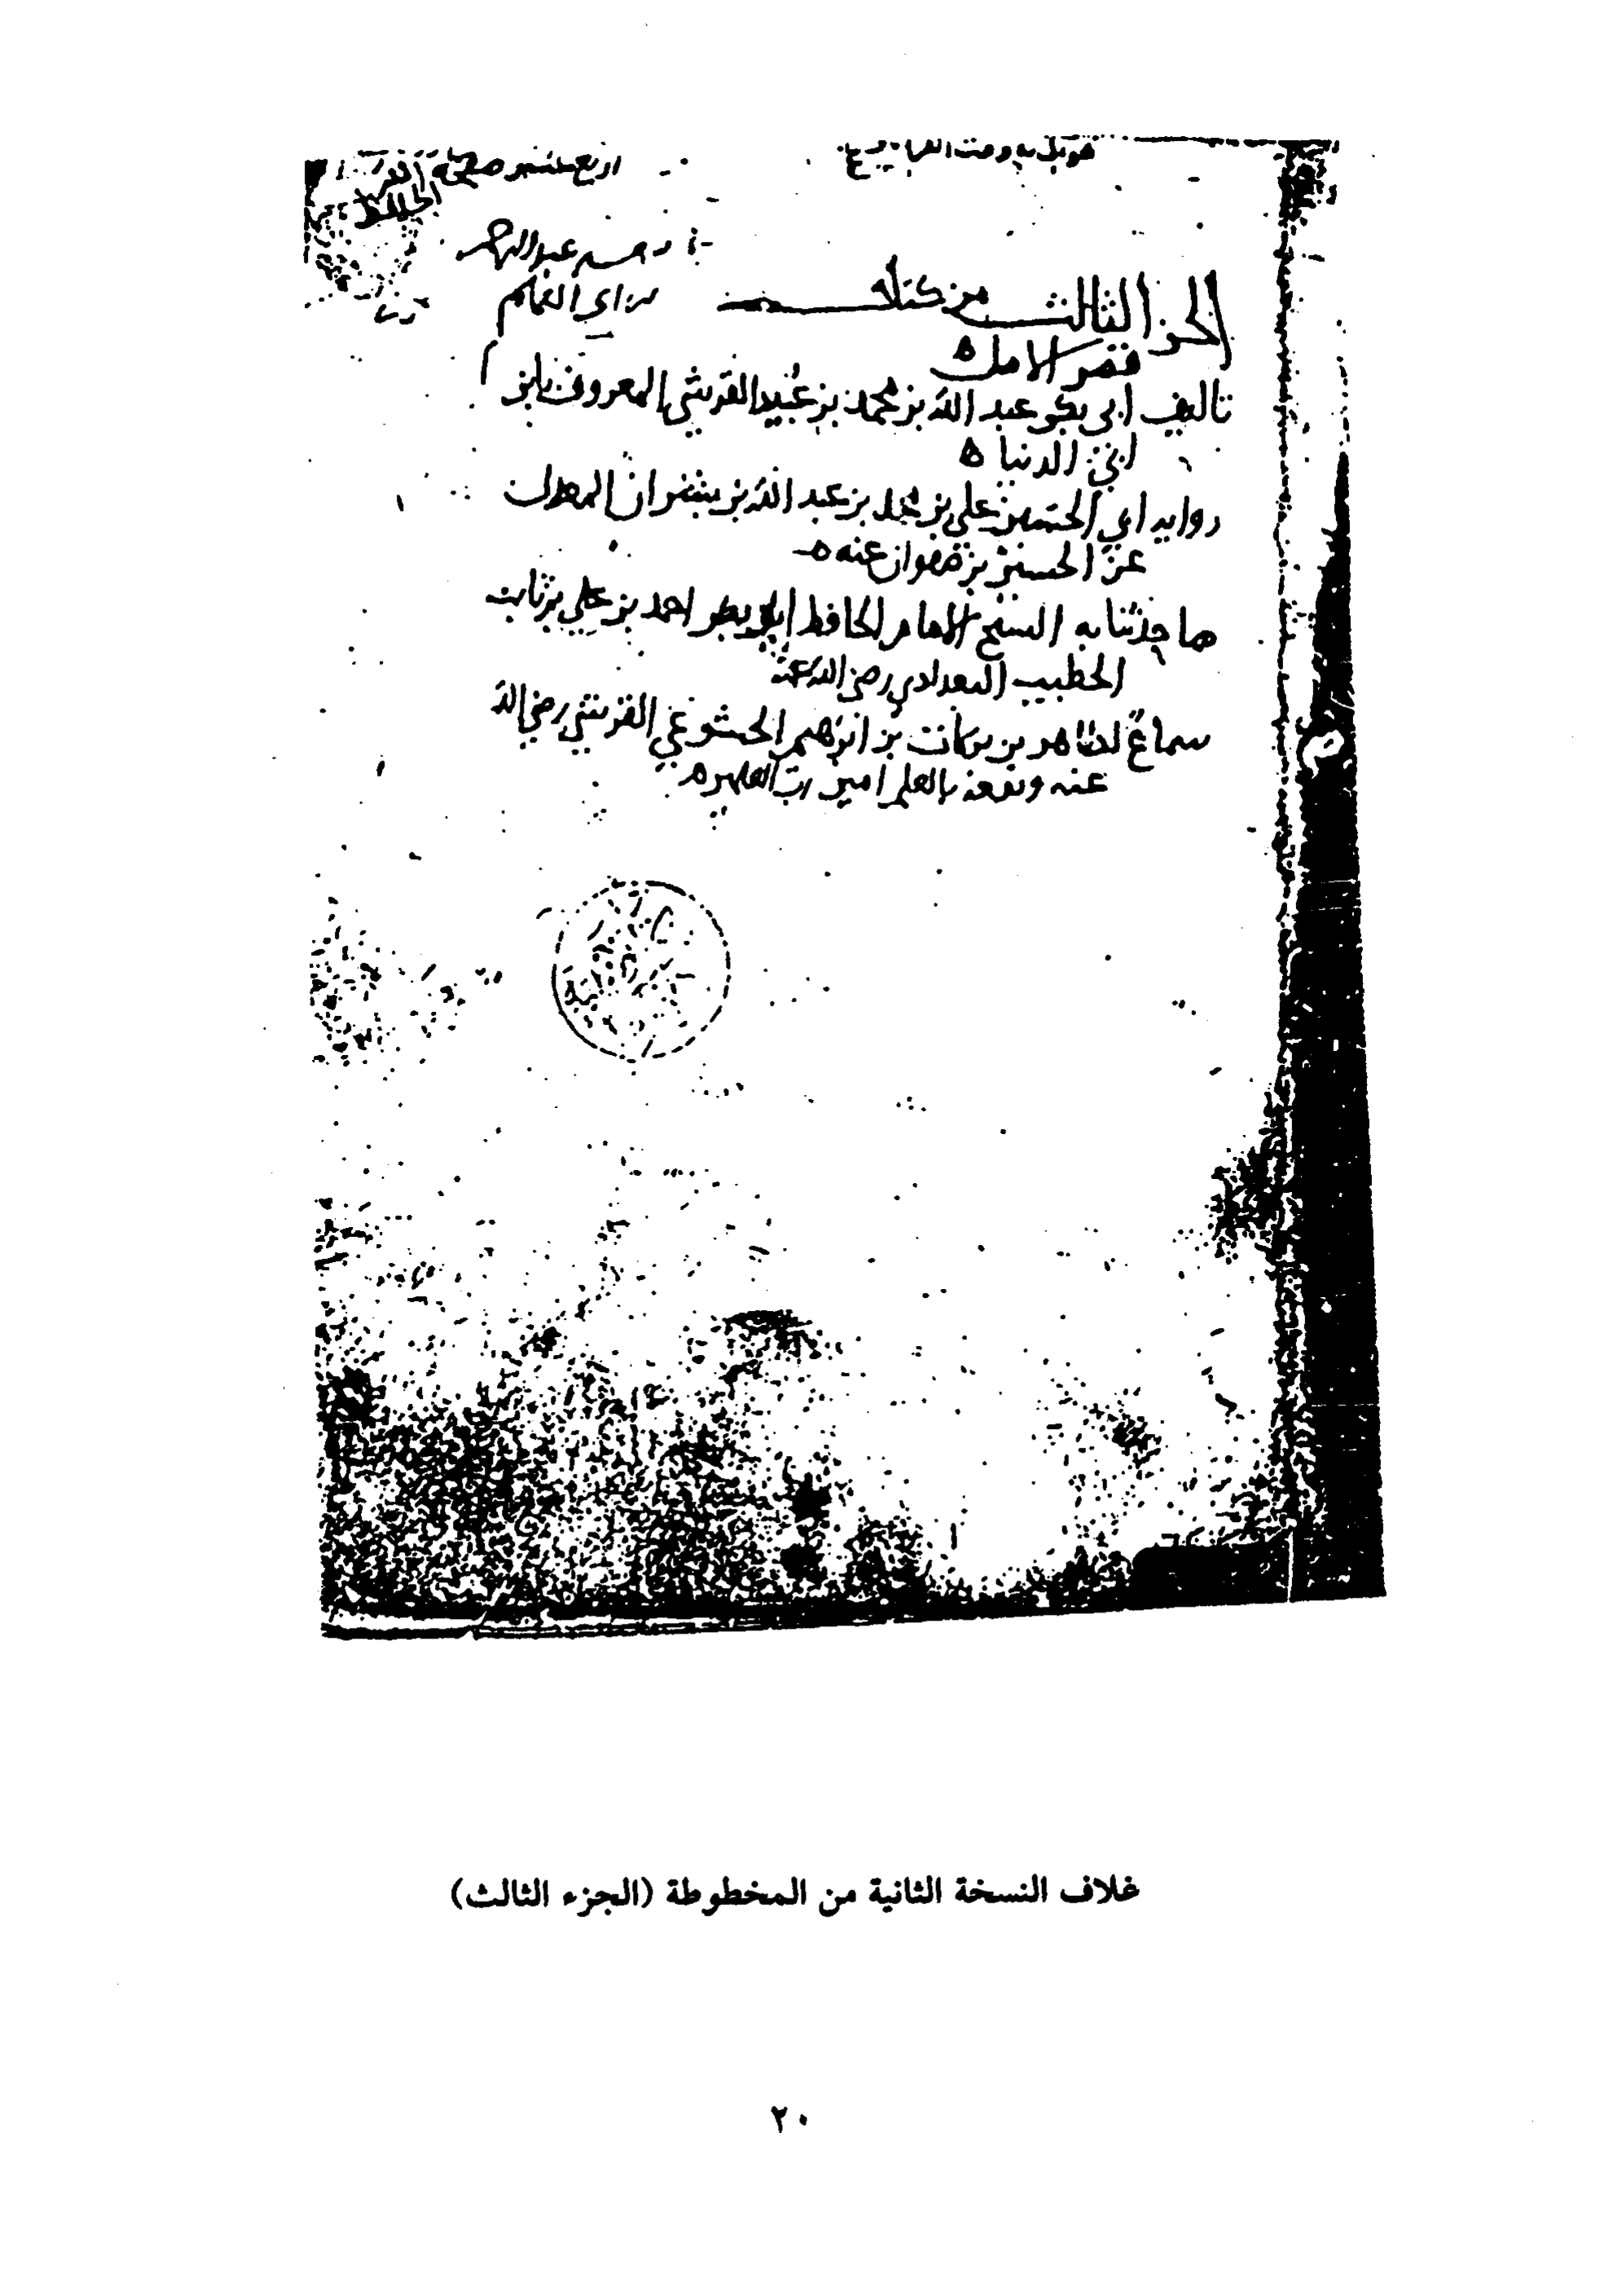 الجزء الثالث من كتاب
قصر الامل
تاليف ابي بكر عبد الله بن محمد بن عبيد القرشي المعروف بابن
ابي الدنيا
رواية ابي الحسين علي بن محمد بن عبد الله بن بشران المعدل
عن الحسين بن صفوان عنه
ما حدثنا به الشيخ الامام الحافظ ابو بكر احمد بن علي بن ثابت
الخطيب البغدادي رضي الله عنه
سماع لطاهر بن بركات بن ابرهيم الخشوعي القرشي رضي الله
عنه ونفعه بالعلم امين رب العلمين
غلاف النسخة الثانية من المخطوطة (الجزء الثالث)
٢٠